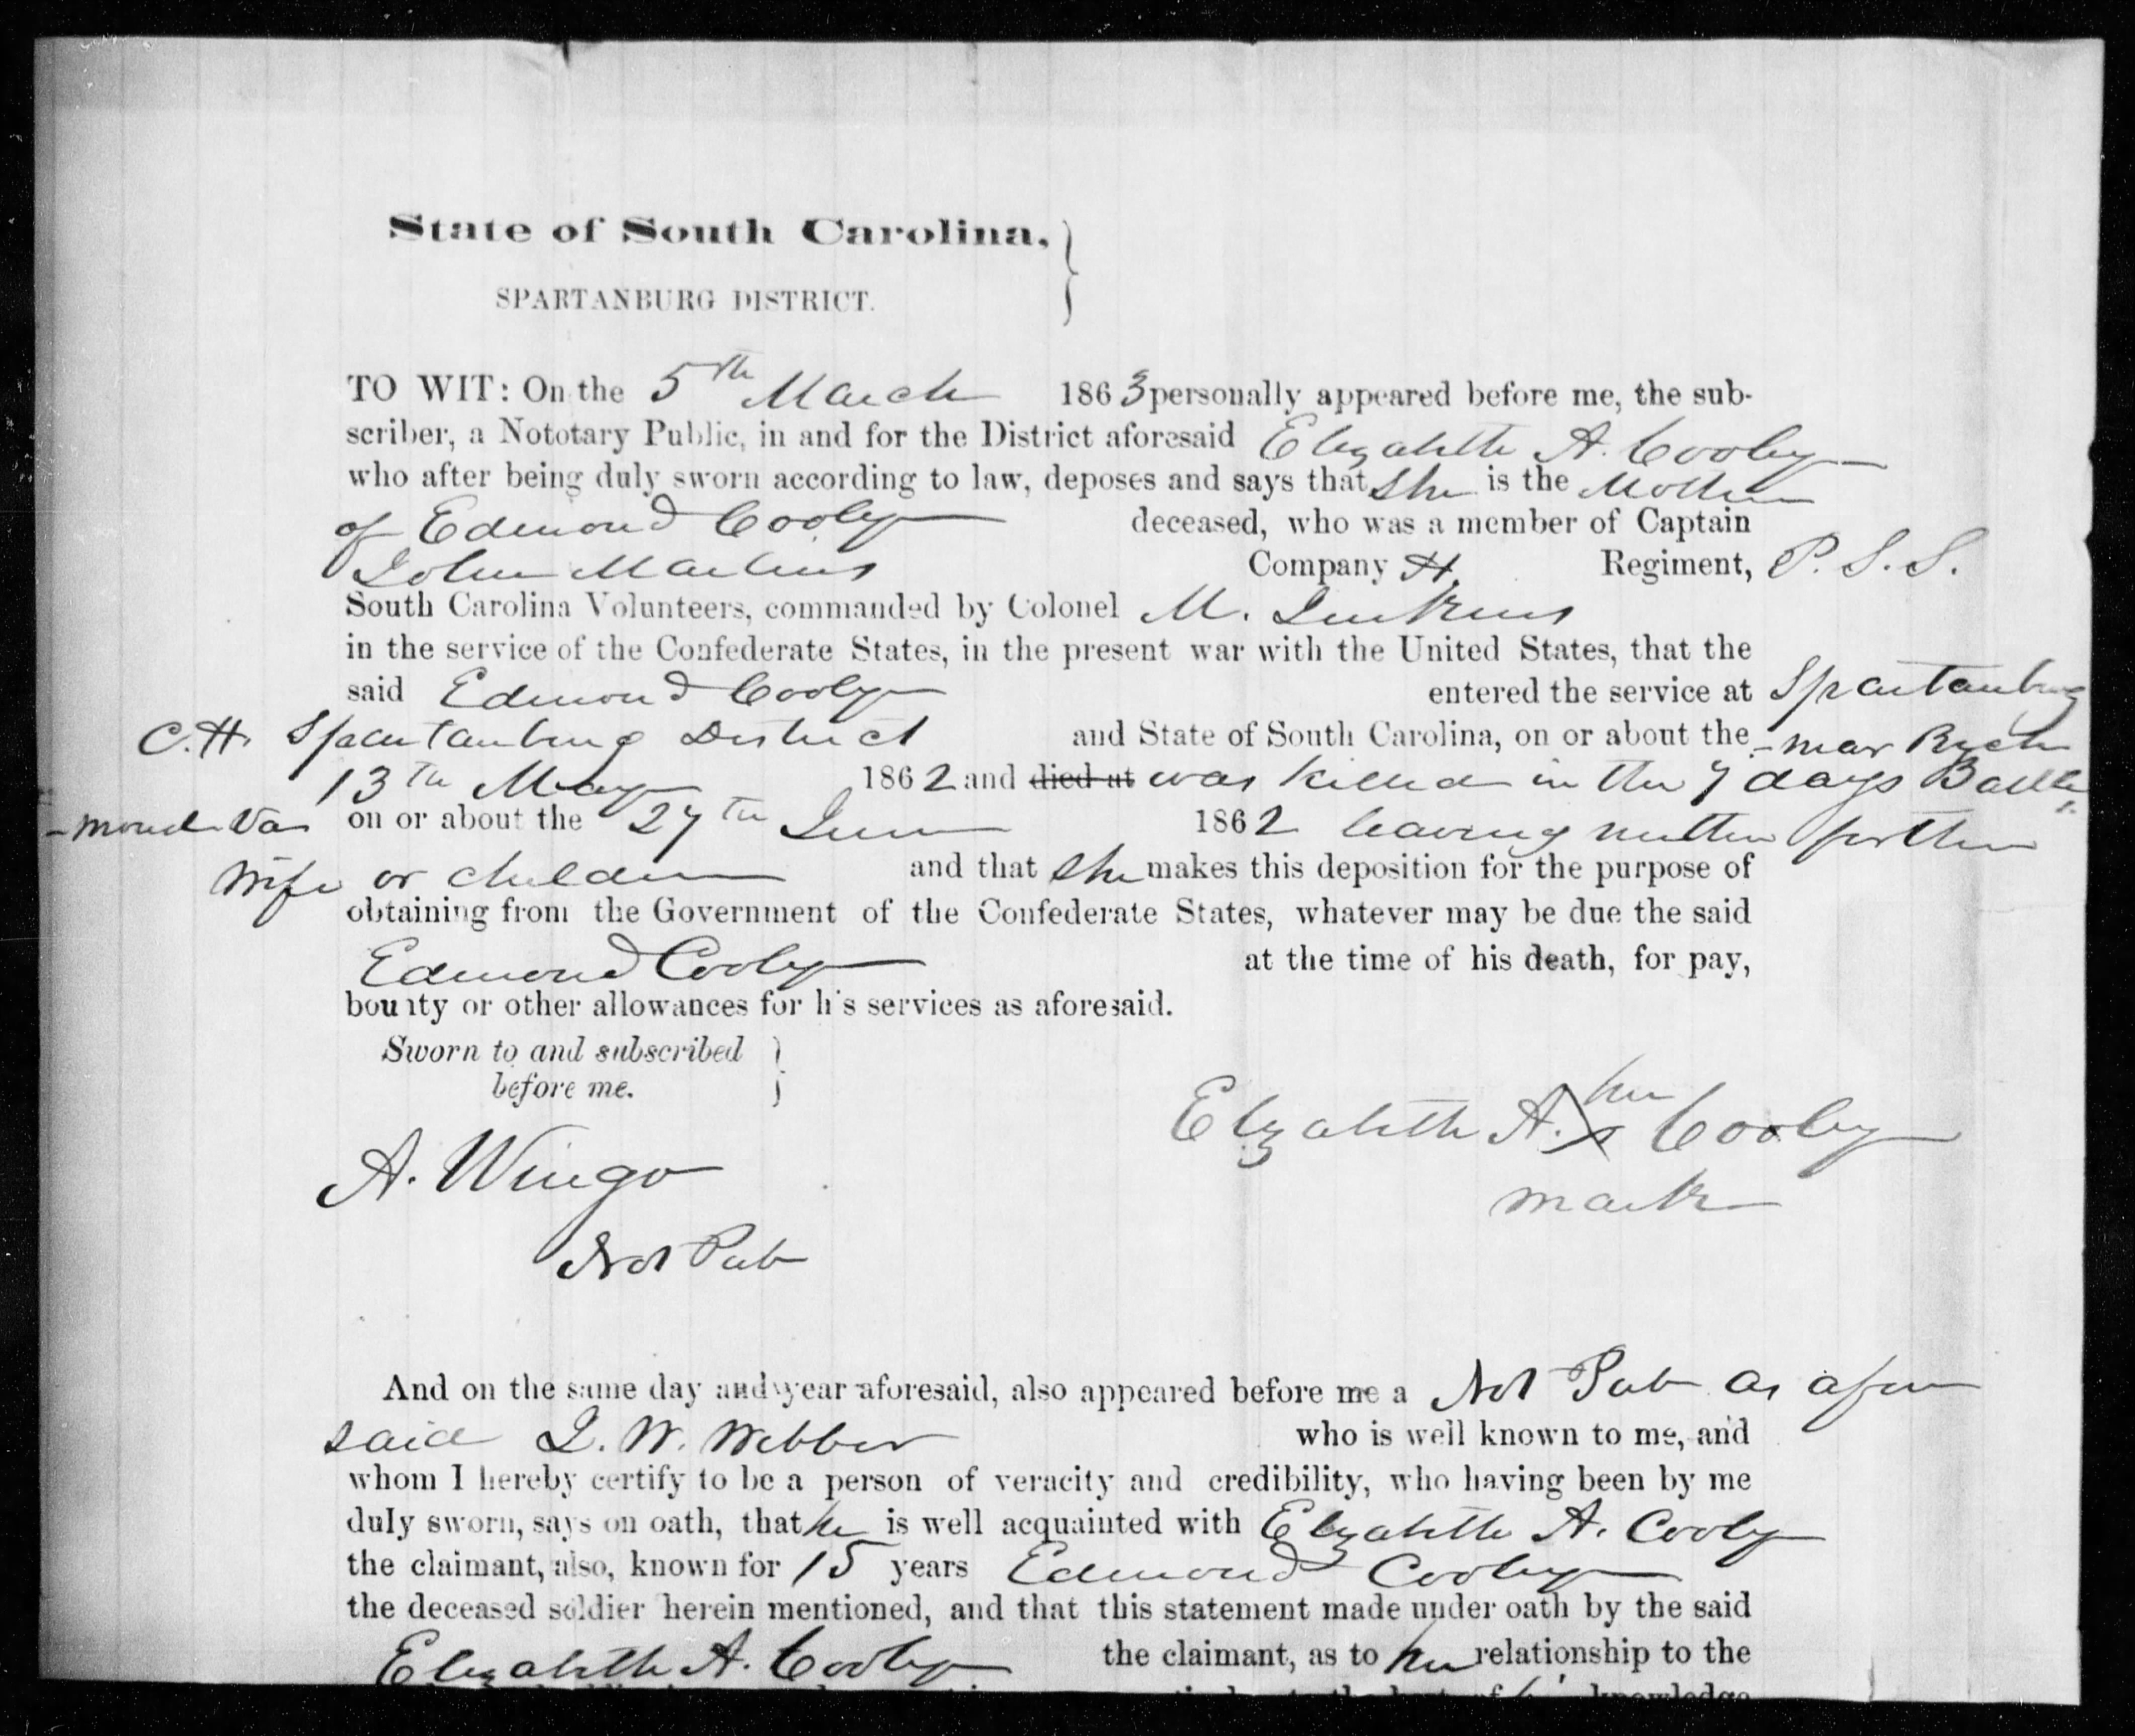 State of South Carolina,
SPARTANBURG DISTRICT.
TO WIT: On the 5th March 1863 personally appeared before me, the sub-
scriber, a Nototary Public, in and for the District aforesaid Elizabeth A. Cooley
who after being duly sworn according to law, deposes and says that she is the Mother
of Edmond Cooley deceased, who was a member of Captain
John Martins Company H. Regiment, P. S. S.
South Carolina Volunteers, commanded by Colonel M. Jenkins
in the service of the Confederate States, in the present war with the United States, that the
said Edmond Cooley entered the service at Spartanburg
C. H. Spartanburg District and State of South Carolina, on or about the
13th May 1862 and died at was killed in the 7 days Battle
near Rich-
-mond Va on or about the 27th June 1862 leaving neither
wife or children and that she makes this deposition for the purpose of
obtaining from the Government of the Confederate States, whatever may be due the said
Edmond Cooley at the time of his death, for pay,
bounty or other allowances for his services as aforesaid.
Sworn to and subscribed
before me.
her
Elizabeth A. X Cooley
mark
A. Wingo
Not Pub
And on the same day and year aforesaid, also appeared before me a Not Pub as afore
said J. W. Webber who is well known to me, and
whom I hereby certify to be a person of veracity and credibility, who having been by me
duly sworn, says on oath, that he is well acquainted with Elizabeth A. Cooley
the claimant, also, known for 15 years Edmond Cooley
the deceased soldier herein mentioned, and that this statement made under oath by the said
Elizabeth A. Cooley the claimant, as to her relationship to the